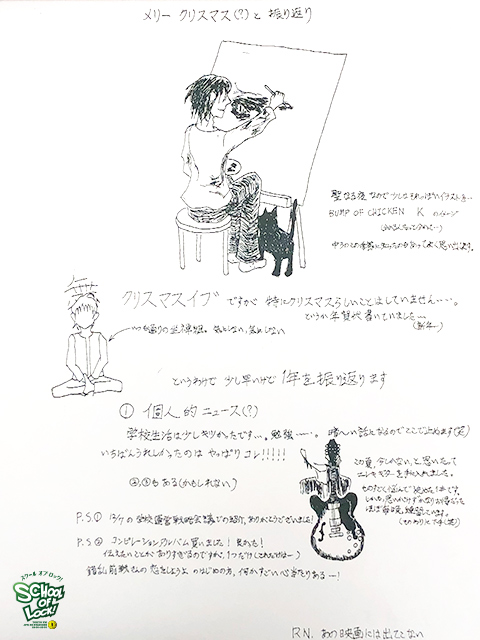 メリー クリスマス(?)と 振り返り
聖なる夜 なので 少しは それっぽい イラストを…
BUMP OF CHICKEN K のイメージ
中3のこの季節に
よく思い出す。
無
クリスマスイブ ですが 特にクリスマスらしいことはしていません…。
というか 年賀状書いていました…
いつも通りの
というわけで 少し早いけど 1年を振り返ります
① 個人的ニュース(?)
学校生活は少しキツかったです…。勉強……。暗〜い話になるのでここで止めます(笑)
いちばんうれしかったのは やっぱり コレ!!!!!
この夏、今しかない、と思い立って
エレキギターを手に入れました。
ものすごく悩んで決めた1本です。
ほぼ毎晩、練習しています。
②,③もある(かもしれない)
P.S.① 12/7 の学校運営戦略会議での紹介、ありがとうございました!
P.S.② コンピレーションアルバム買いました!
伝えたいことがありすぎるのですが、1つだけ
錯乱前戦さんの 恋をしようよ のはじめの方、何かすごい心当たりある…!
スクール オブ ロック!
SCHOOL OF LOCK!
R.N. あの映画には出てこない